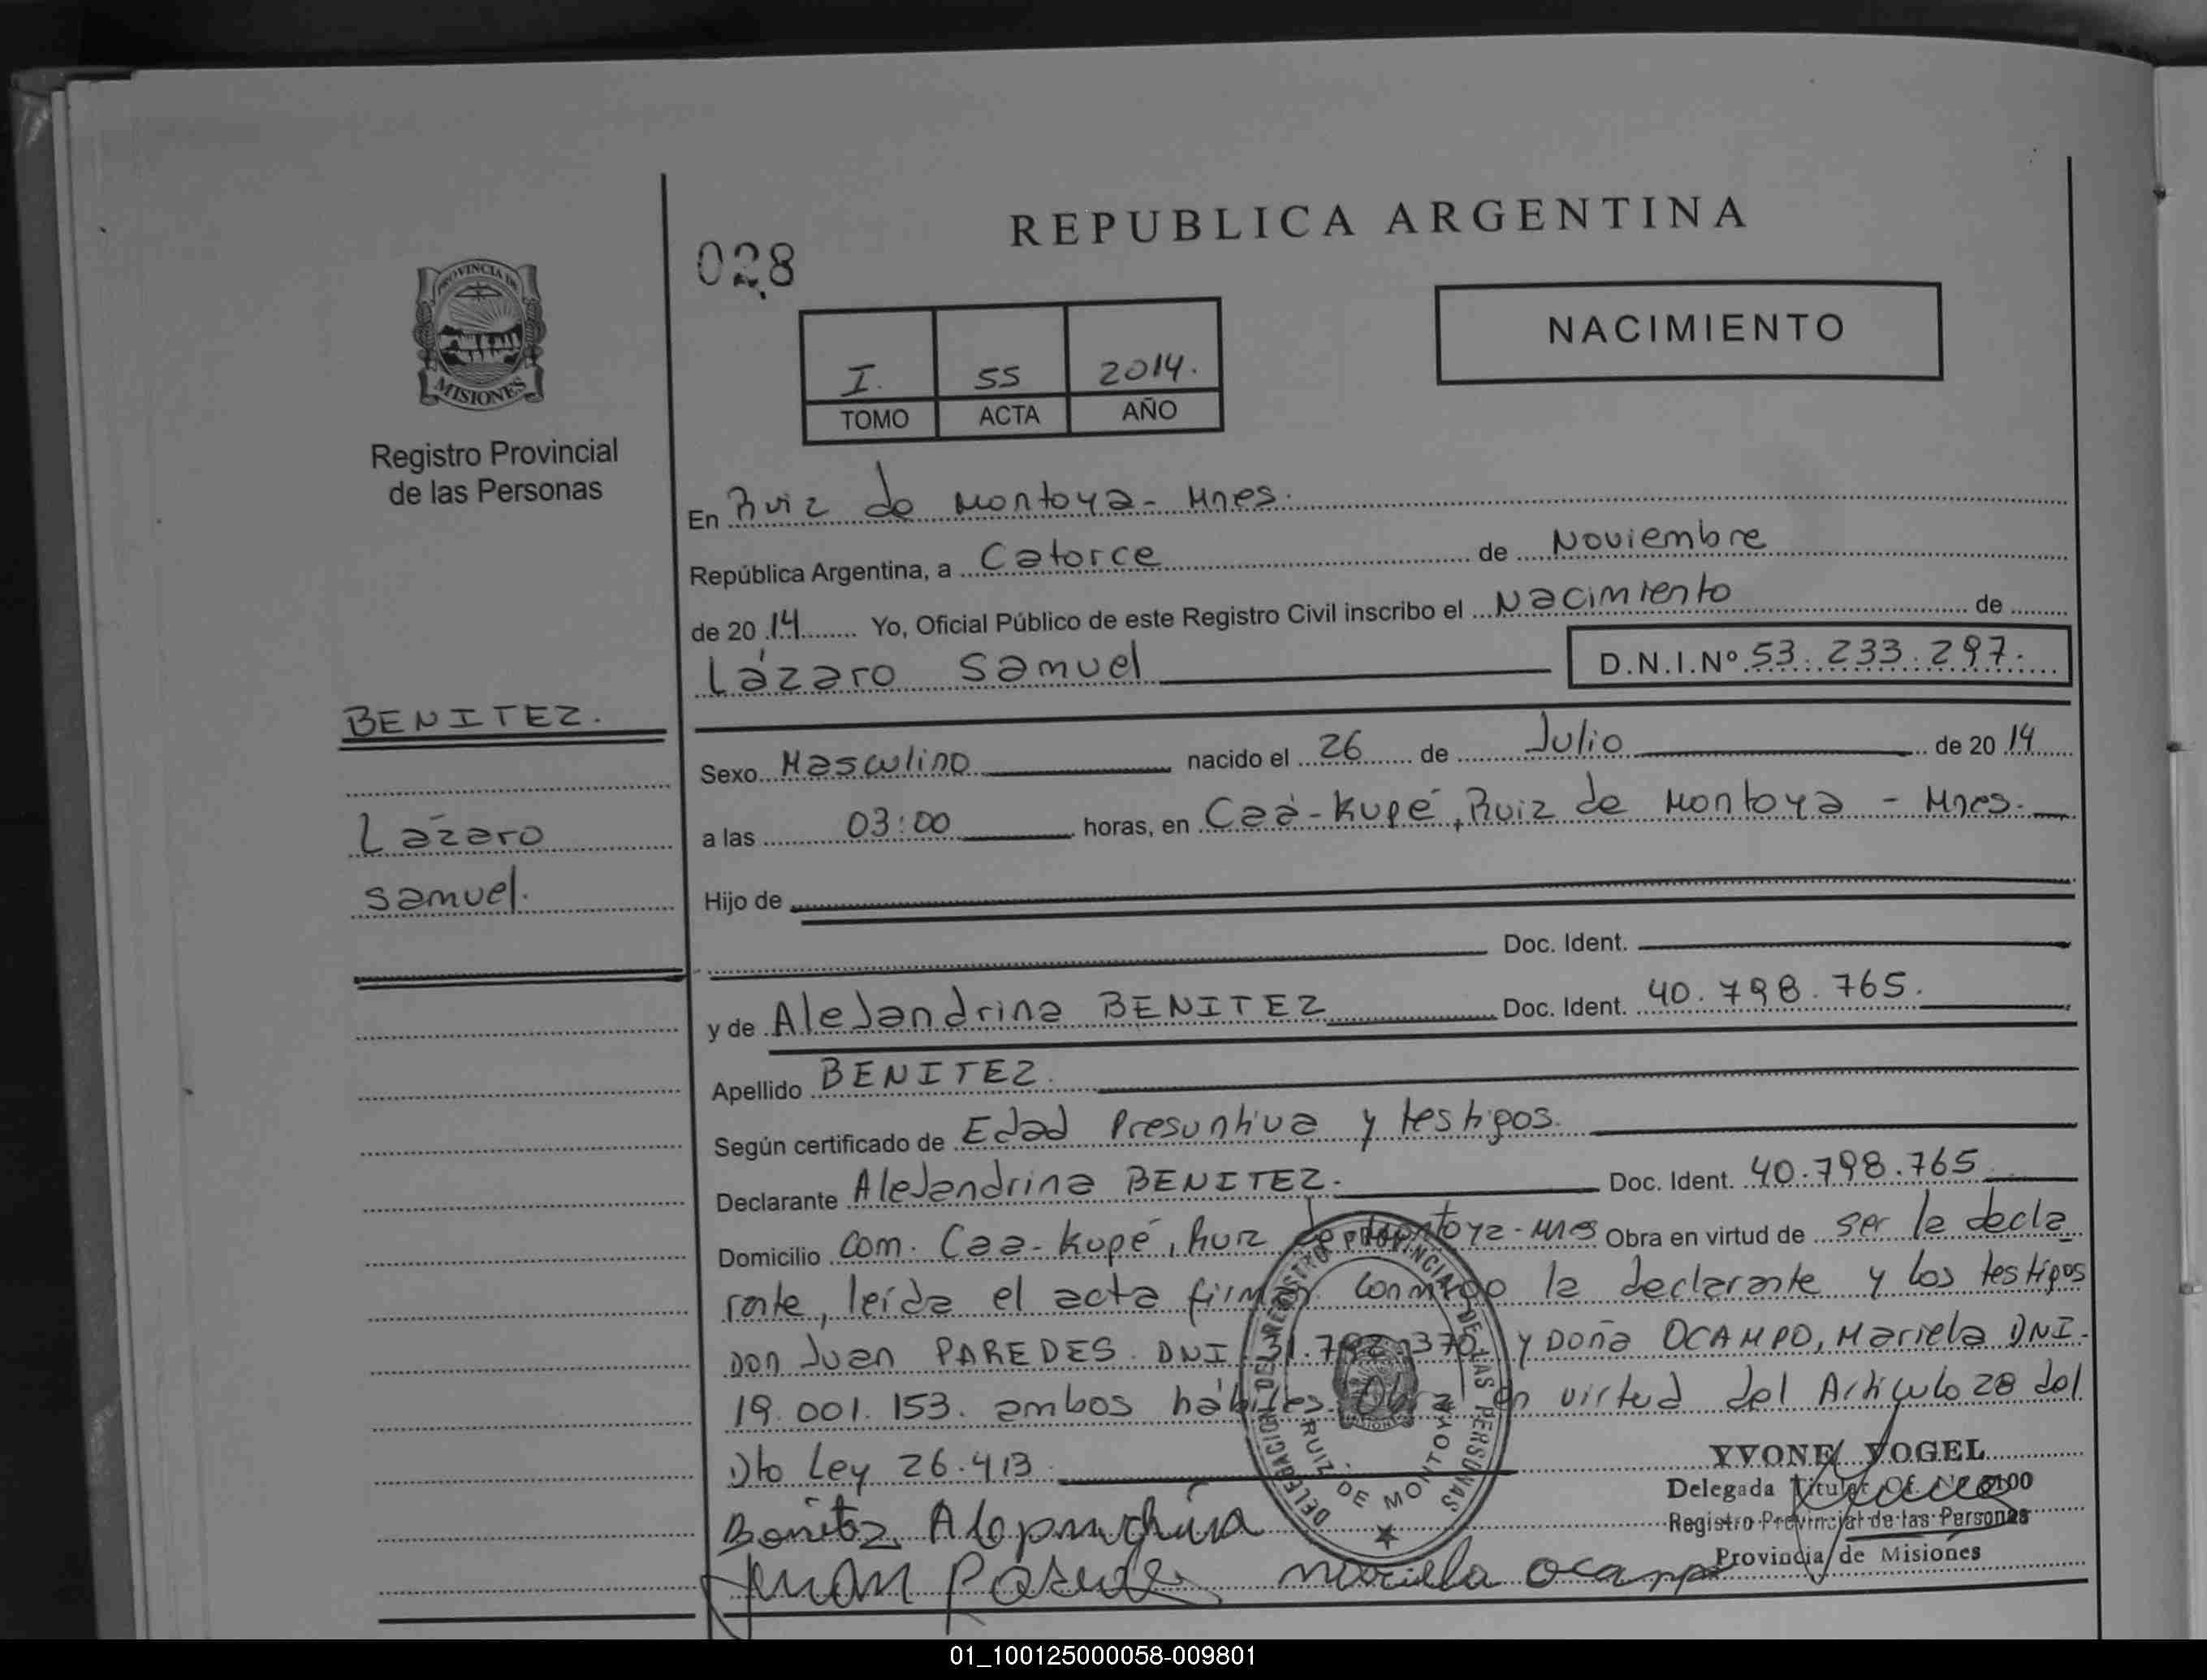 REPUBLICA ARGENTINA
028
PROVINCIA DE
MISIONES
Registro Provincial
de las Personas
NACIMIENTO
I. 55 2014.
TOMO ACTA AÑO
En Ruiz de Montoya - Mnes.
República Argentina, a Catorce de Noviembre
de 20 14 Yo, Oficial Público de este Registro Civil inscribo el Nacimiento de
Lázaro Samuel D.N.I.Nº 53.233.297.
BENITEZ.
Lázaro
Samuel.
Sexo Masculino nacido el 26 de Julio de 20 14
a las 03:00 horas, en Caá-Kupé, Ruiz de Montoya - Mnes.
Hijo de
Doc. Ident.
y de AleJandrina BENITEZ Doc. Ident. 40.798.765.
Apellido BENITEZ.
Según certificado de Edad Presuntiva y testigos.
Declarante AleJandrina BENITEZ. Doc. Ident. 40.798.765
Domicilio Com. Caa-Kupé, Ruiz de Montoya - Mnes Obra en virtud de ser la decla
rante, leída el acta firman conmigo la declarante y los testigos
Don Juan PAREDES. DNI 31. 370 y Doña OCAMPO, Mariela DNI.
19.001.153. ambos hábiles. Obra en virtud del Artículo 28 del
Dto Ley 26.413
DELEGACION DEL REGISTRO PROVINCIAL DE LAS PERSONAS
RUIZ DE MONTOYA
YVONE VOGEL
Delegada Titular Of.
Registro Provincial de las Personas
Provincia de Misiones
Benitez
Juan Mariela Ocampo
01_100125000058-009801